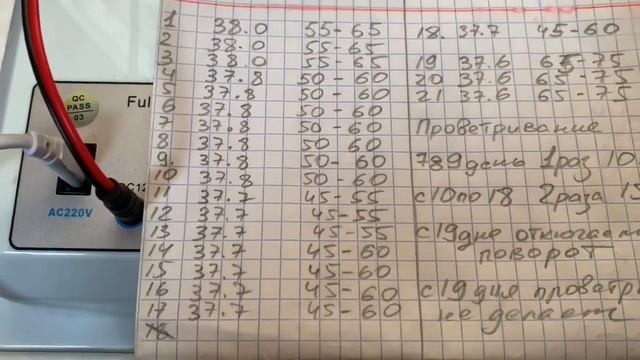 1 38.0 55-65
2 38.0 55-65
3 38.0 55-65
4 37.8 50-60
5 37.8 50-60
6 37.8 50-60
7 37.8 50-60
8 37.8 50-60
9. 37.8 50-60
10 37.8 50-60
11 37.7 45-55
12 37.7 45-55
13 37.7 45-55
14 37.7 45-60
15 37.7 45-60
16 37.7 45-60
17 37.7 45-60
18. 37.7 45-60
19 37.6 65-75
20 37.6 65-75
21 37.6 65-75
Проветривание
789 день 1раз 10
с 10 по 18 2 раза 15
с 19 дня отключаем
поворот
с 19 дня проветри
не делает
QC
PASS
03
Ful
C12
AC220V